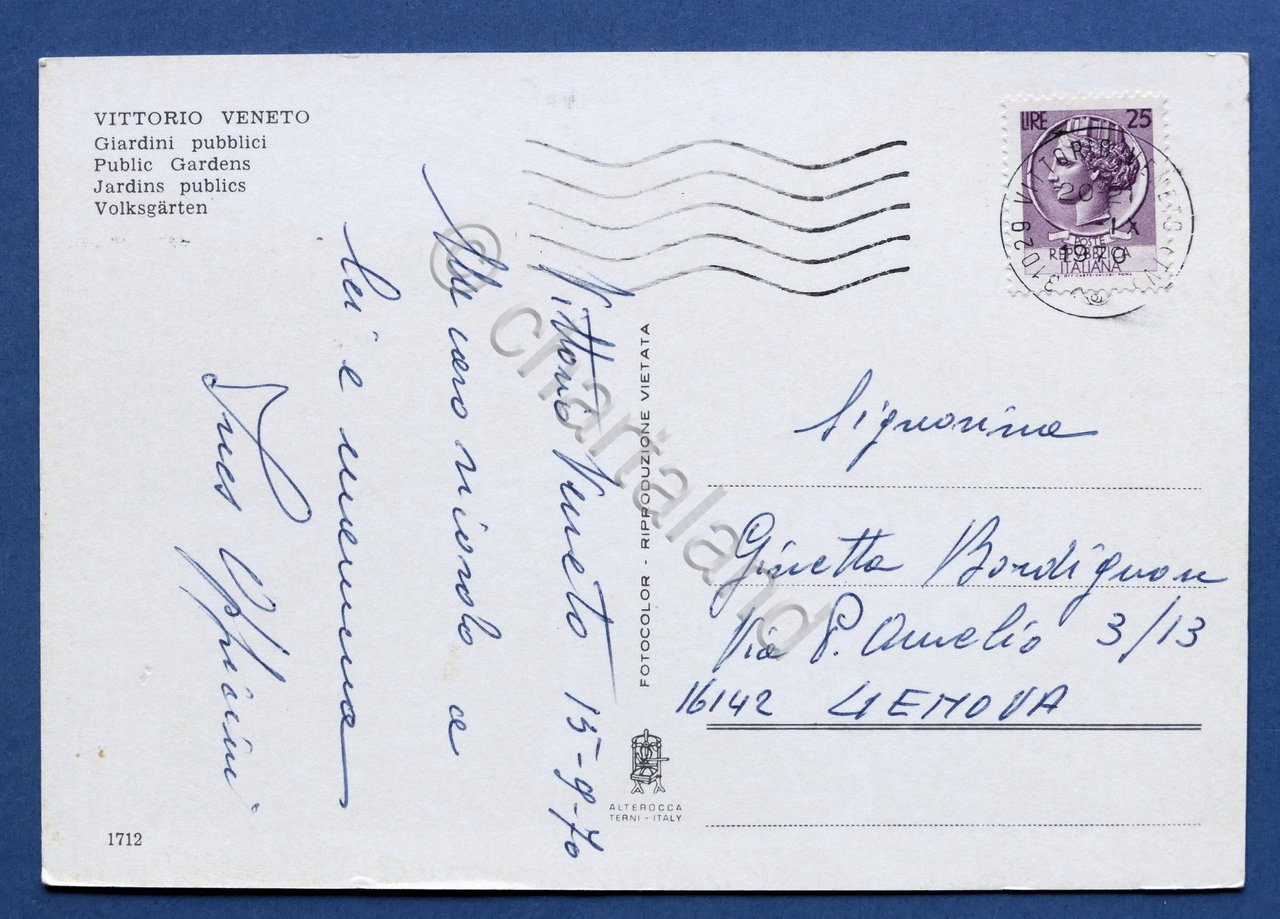 VITTORIO VENETO
Giardini pubblici
Public Gardens
Jardins publics
Volksgärten
Vittorio Veneto 15-9-70
Un caro ricordo a
lei e mamma
Ines
1712
FOTOCOLOR - RIPRODUZIONE VIETATA
ALTEROCCA
TERNI - ITALY
LIRE 25
POSTE
REPUBBLICA
ITALIANA
31029 VITTORIO VENETO (TV)
20
-IX
1970
Signorina
Ginetta Bordignon
Via P. Amelio 3/13
16142 GENOVA
© chartaland